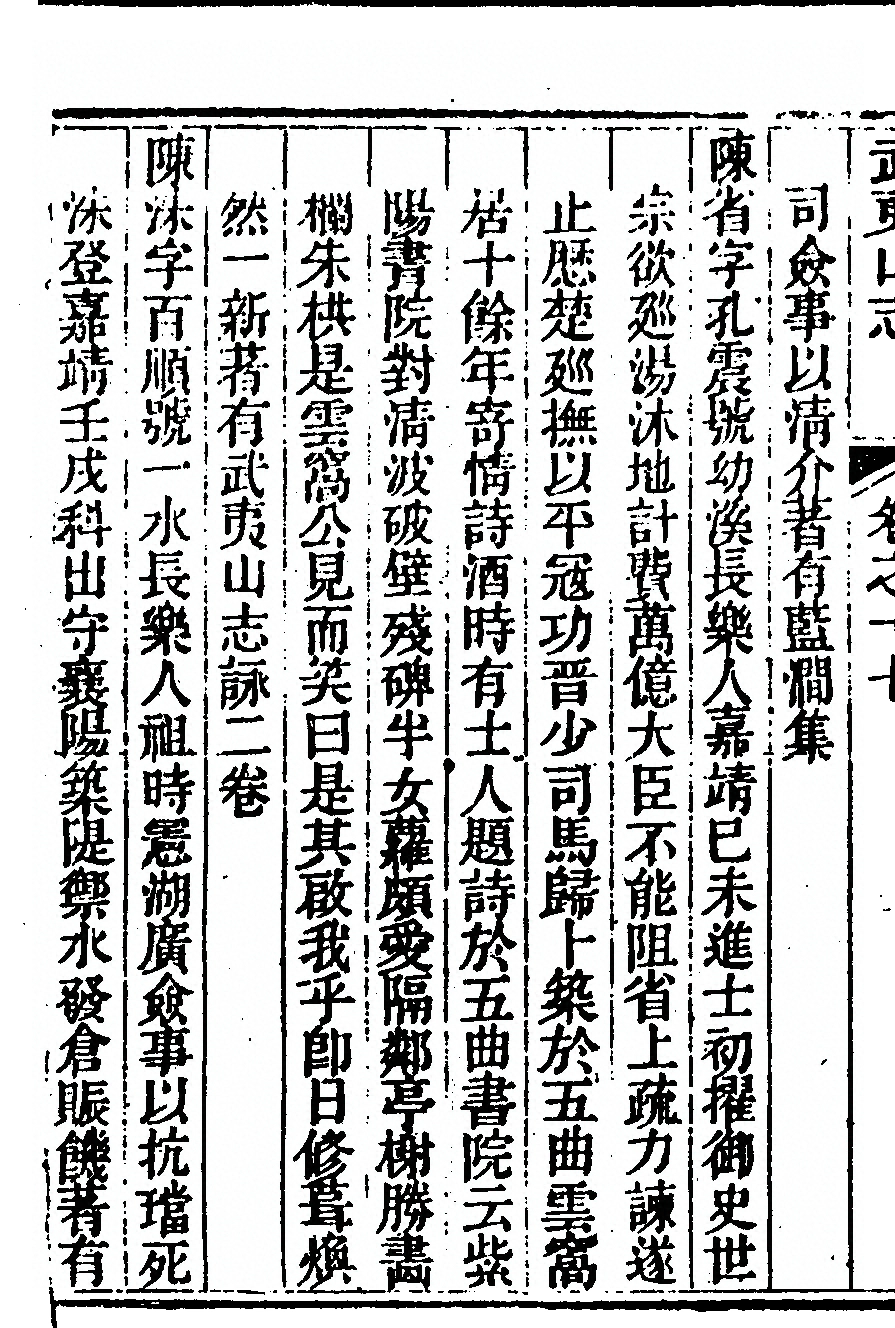 武夷山志 卷之十七
司僉事以淸介著有藍澗集
陳省字孔震號幼溪長樂人嘉靖巳未進士初擢御史世
宗欲廵湯沐地計費萬億大臣不能阻省上疏力諫遂
止歷楚廵撫以平冦功晋少司馬歸卜築於五曲雲窩
居十餘年寄情詩酒時有士人題詩於五曲書院云紫
陽書院對淸波破壁殘碑半女蘿頗愛隔鄰亭榭勝畵
欄朱栱是雲窩公見而笑曰是其啟我乎卽日修葺煥
然一新著有武夷山志詠二卷
陳洙字百順號一水長樂人祖時憲湖廣僉事以抗璫死
洙登嘉靖壬戌科出守襄陽築隄禦水發倉賑饑著有